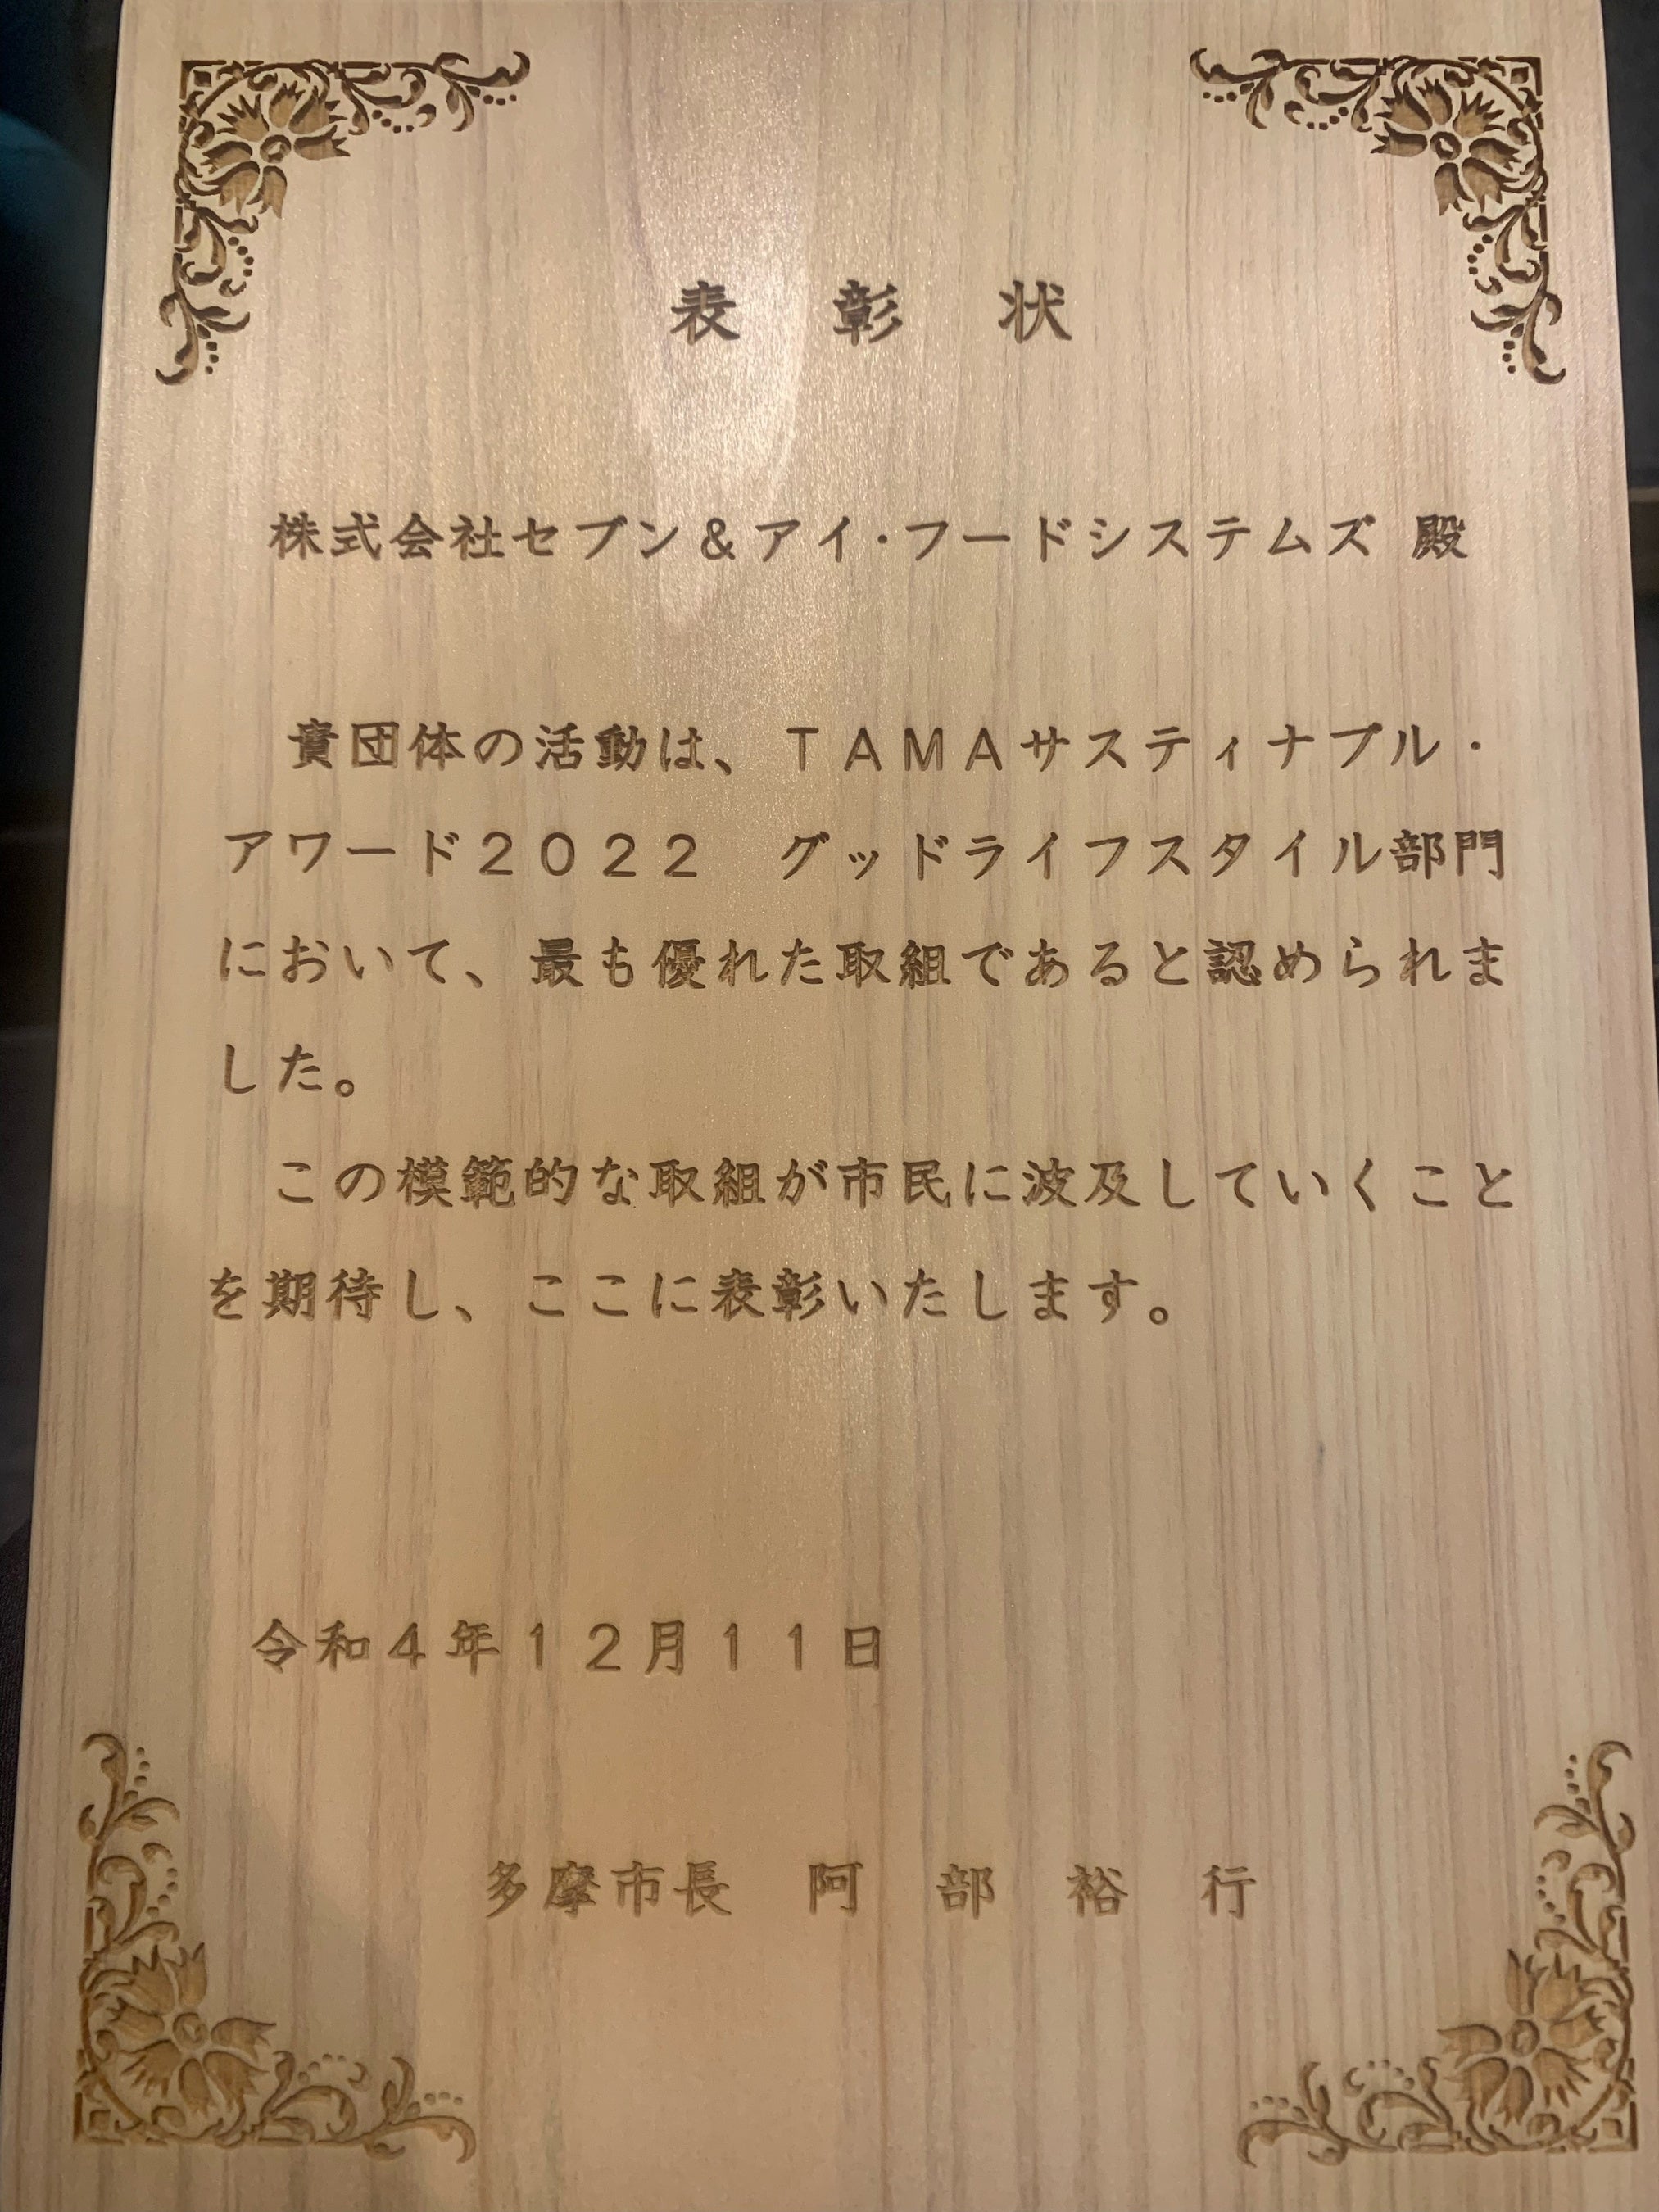 表　彰　状
株式会社セブン＆アイ・フードシステムズ 殿
貴団体の活動は、ＴＡＭＡサスティナブル・
アワード２０２２　グッドライフスタイル部門
において、最も優れた取組であると認められま
した。
この模範的な取組が市民に波及していくこと
を期待し、ここに表彰いたします。
令和４年１２月１１日
多摩市長　阿　部　裕　行